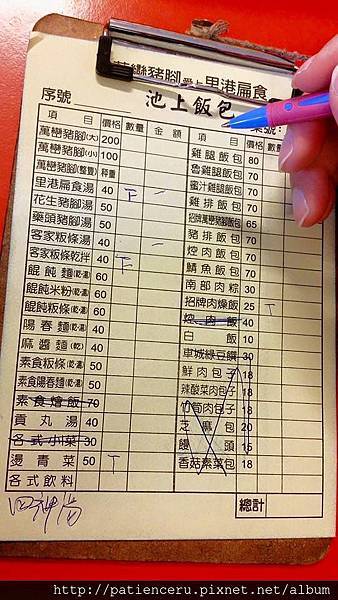 萬巒豬腳愛上里港扁食
池上飯包
序號
桌號:
項 目 價格 數量 金額
萬巒豬腳(大) 200
萬巒豬腳(小) 100
萬巒豬腳(整隻) 秤重
里港扁食湯 40 下
花生豬腳湯 50
藥頭豬腳湯 50
客家粄條湯 40
客家粄條乾拌 40 下
餛飩麵(乾.湯) 60
餛飩米粉(乾.湯) 60
餛飩粄條(乾.湯) 60
陽春麵(乾.湯) 40
麻醬麵(乾) 40
素食粄條(乾.湯) 50
素食陽春麵(乾.湯) 50
素食燴飯 70
貢丸湯 40
各式小菜 30
燙青菜 50 T
各式飲料
四神湯
項 目 價格 數量
雞腿飯包 80
魯雞腿飯包 70
蜜汁雞腿飯包 70
雞排飯包 70
招牌萬巒豬腳飯包 65
豬排飯包 70
焢肉飯包 70
鯖魚飯包 70
南部肉粽 30
招牌肉燥飯 25 T
焢肉飯 40
白飯 10
車城綠豆饌 30
鮮肉包子 18
辣酸菜肉包子 18
竹筍肉包子 18
芝麻包 20
饅頭 15
香菇素菜包 18
總計
http://patienceru.pixnet.net/album